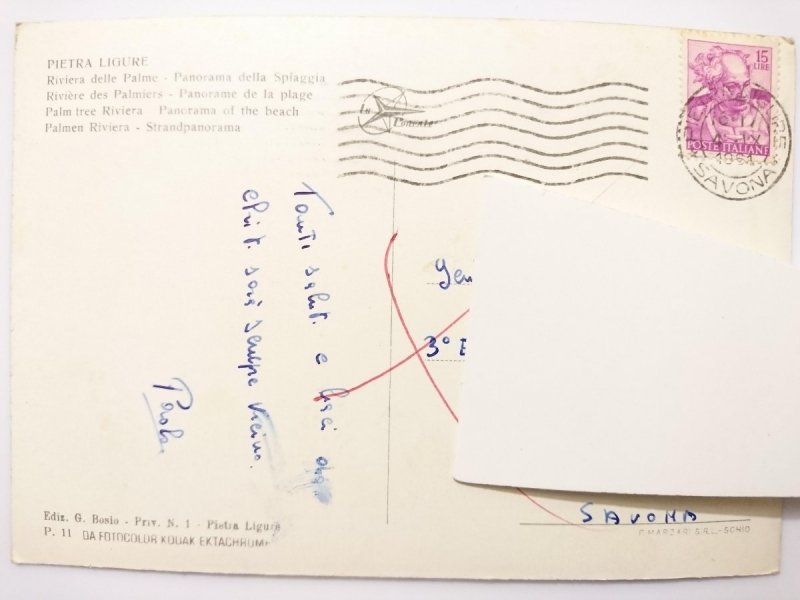 PIETRA LIGURE
Riviera delle Palme - Panorama della Spiaggia
Rivière des Palmiers - Panorame de la plage
Palm tree Riviera Panorama of the beach
Palmen Riviera - Strandpanorama
15
LIRE
POSTE ITALIANE
SAVONA
Tanti saluti e baci da
chi ti sarà sempre vicino.
Paola
3° E
SAVONA
Ediz. G. Bosio - Priv. N. 1 - Pietra Ligure
P. 11 DA FOTOCOLOR KODAK EKTACHROME